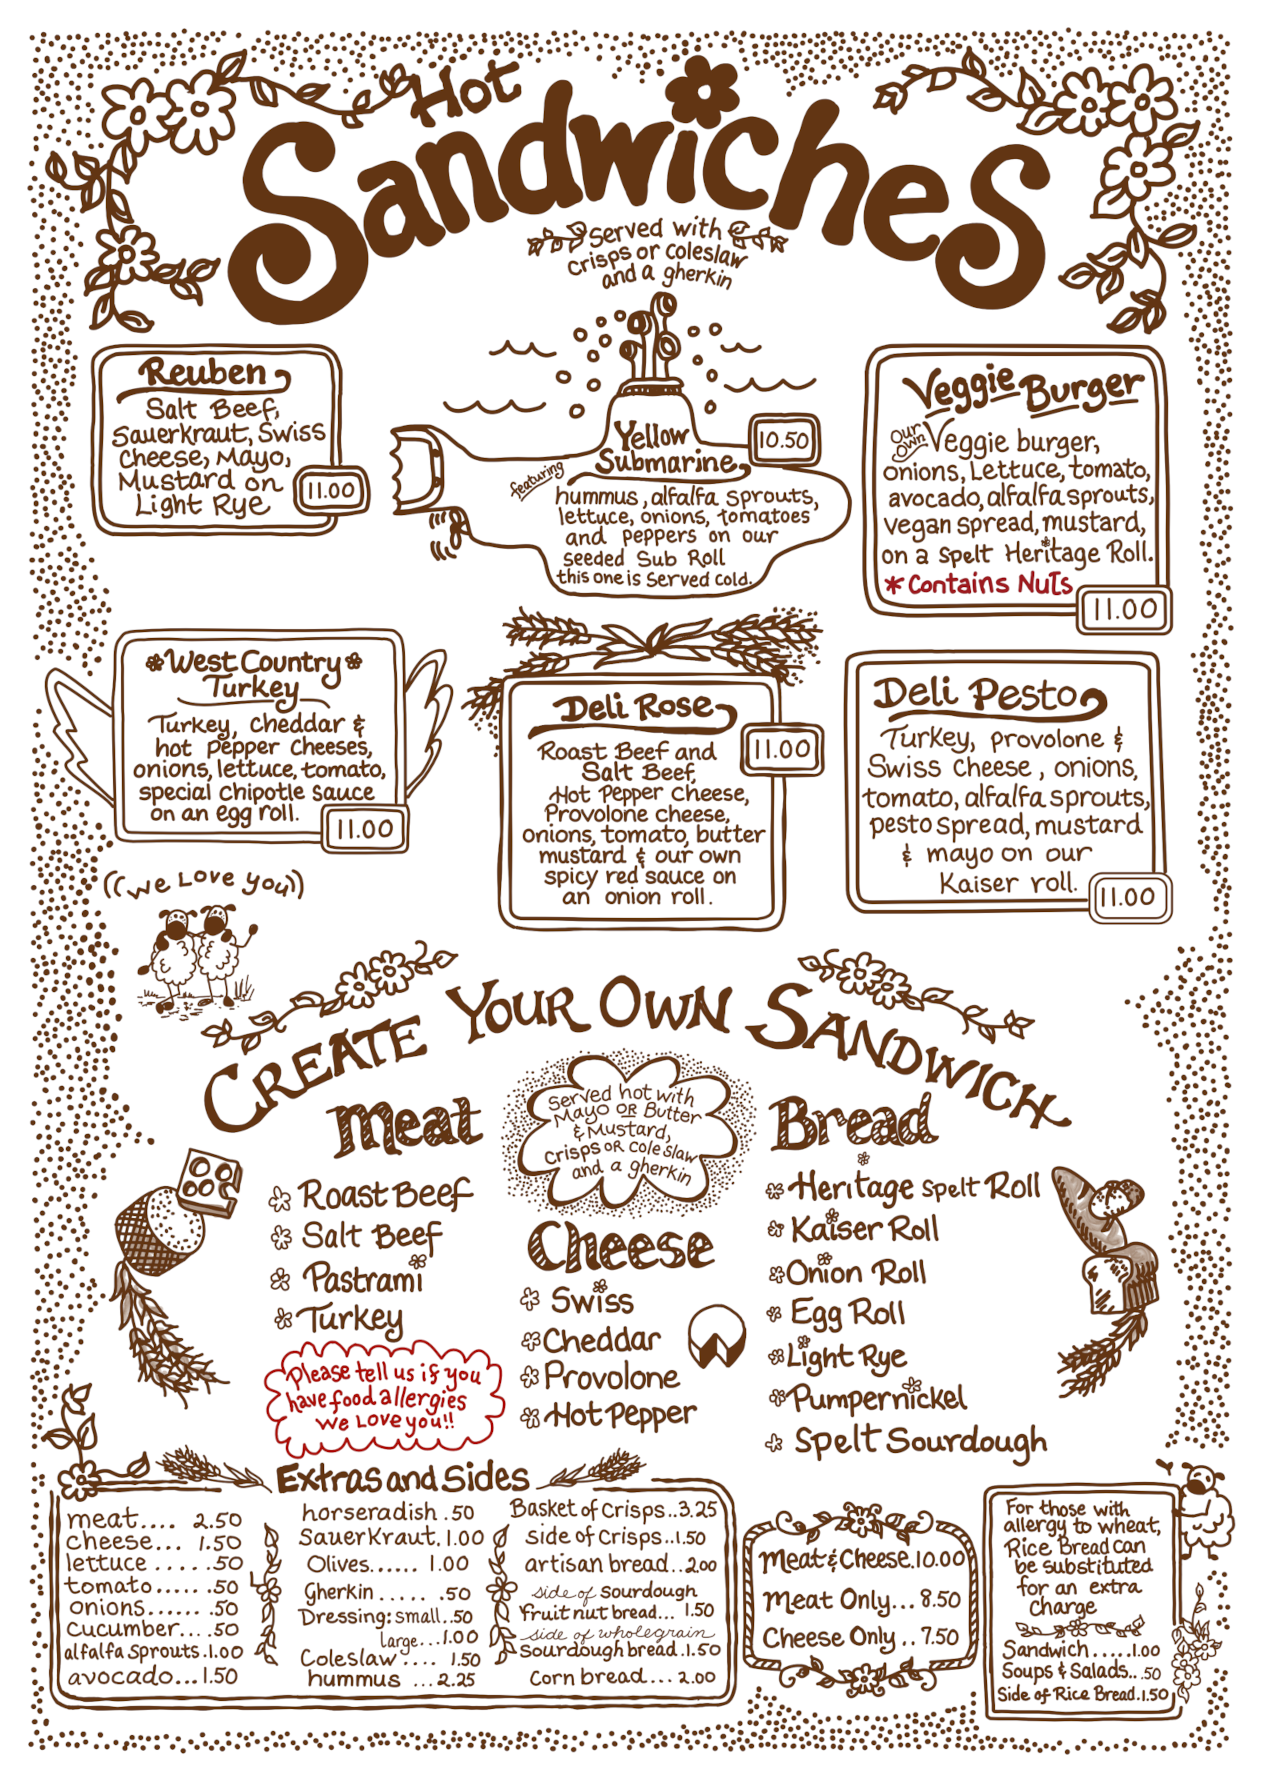 Hot
Sandwiches
Served with
Crisps or coleslaw
and a gherkin
Reuben
Salt Beef,
Sauerkraut, Swiss
Cheese, Mayo,
Mustard on
Light Rye
11.00
Yellow
Submarine
10.50
featuring
hummus, alfalfa sprouts,
lettuce, onions, tomatoes
and peppers on our
seeded Sub Roll
this one is Served cold.
Veggie Burger
Our Own Veggie burger,
onions, Lettuce, tomato,
avocado, alfalfa sprouts,
vegan spread, mustard,
on a spelt Heritage Roll.
*Contains Nuts
11.00
West Country
Turkey
Turkey, cheddar &
hot pepper cheeses,
onions, lettuce, tomato,
special chipotle sauce
on an egg roll.
11.00
Deli Rose
11.00
Roast Beef and
Salt Beef,
Hot Pepper cheese,
Provolone cheese,
onions, tomato, butter
mustard & our own
spicy red sauce on
an onion roll.
Deli Pesto
Turkey, provolone &
Swiss Cheese, onions,
tomato, alfalfa sprouts,
pesto spread, mustard
& mayo on our
Kaiser roll.
11.00
((we Love you))
CREATE YOUR OWN SANDWICH
Served hot with
Mayo OR Butter
& Mustard,
Crisps OR coleslaw
and a gherkin
Meat
Roast Beef
Salt Beef
Pastrami
Turkey
Please tell us if you
have food allergies
We Love you!!
Cheese
Swiss
Cheddar
Provolone
Hot Pepper
Bread
Heritage spelt Roll
Kaiser Roll
Onion Roll
Egg Roll
Light Rye
Pumpernickel
Spelt Sourdough
Extras and Sides
meat.... 2.50
cheese... 1.50
lettuce ...... .50
tomato..... .50
onions...... .50
cucumber... .50
alfalfa sprouts.1.00
avocado...1.50
horseradish .50
Sauerkraut.1.00
Olives...... 1.00
Gherkin ..... .50
Dressing: small..50
large...1.00
Coleslaw.... 1.50
hummus ...2.25
Basket of Crisps..3.25
side of Crisps..1.50
artisan bread...2.00
side of sourdough
fruit nut bread... 1.50
side of wholegrain
sourdough bread.1.50
Corn bread... 2.00
Meat & Cheese.10.00
Meat Only... 8.50
Cheese Only .. 7.50
For those with
allergy to wheat,
Rice Bread can
be substituted
for an extra
Charge
Sandwich.....1.00
Soups & Salads...50
Side of Rice Bread.1.50